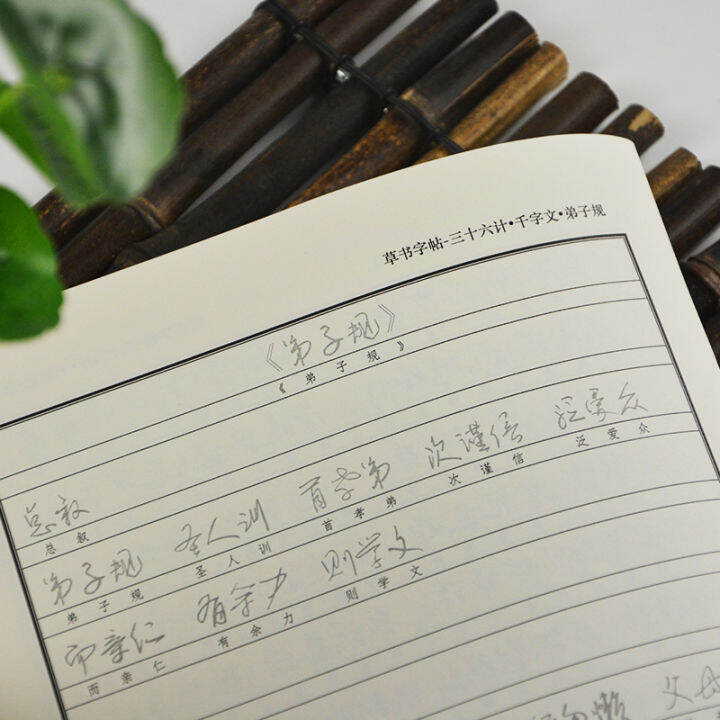 草书字帖-三十六计•千字文•弟子规
《弟子规》
《弟子规》
总叙
总叙
弟子规 圣人训 首孝弟 次谨信 泛爱众
弟子规 圣人训 首孝弟 次谨信 泛爱众
而亲仁 有余力 则学文
而亲仁 有余力 则学文
父母